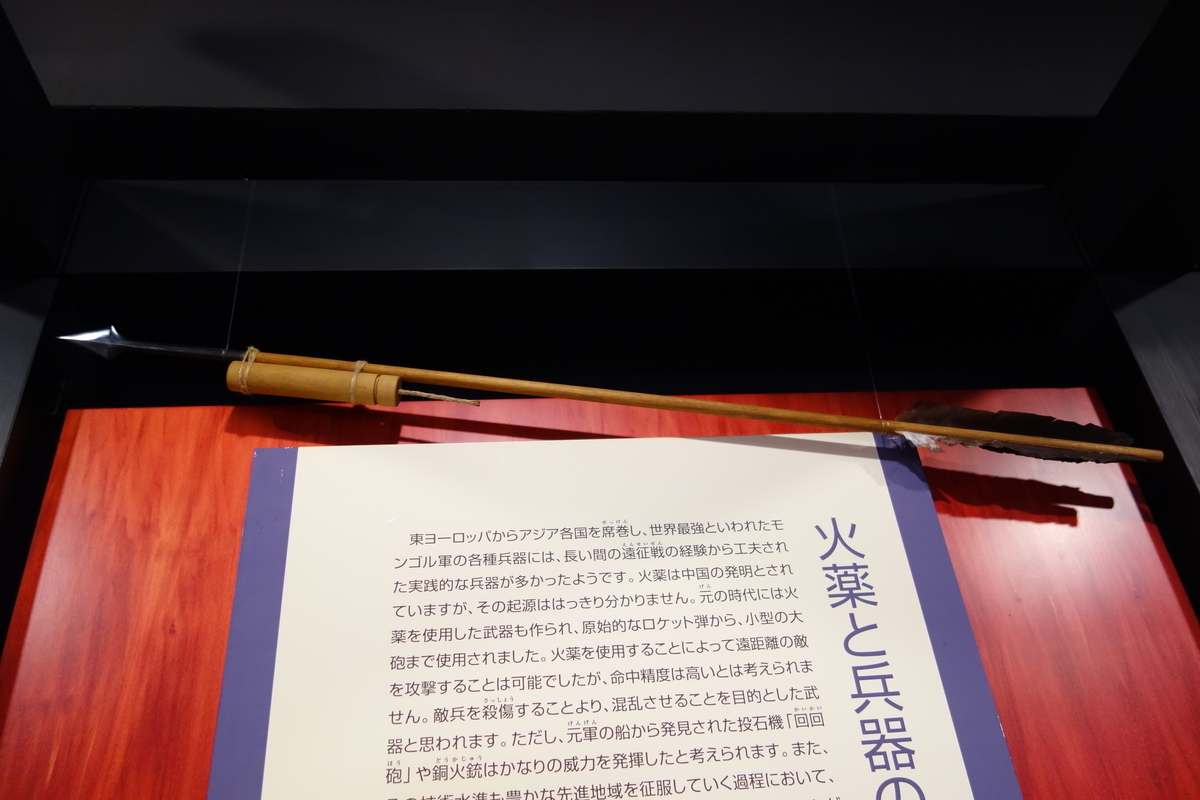 火薬と兵器の
東ヨーロッパからアジア各国を席巻し、世界最強といわれたモ
ンゴル軍の各種兵器には、長い間の遠征戦の経験から工夫され
た実践的な兵器が多かったようです。火薬は中国の発明とされ
ていますが、その起源ははっきり分かりません。元の時代には火
薬を使用した武器も作られ、原始的なロケット弾から、小型の大
砲まで使用されました。火薬を使用することによって遠距離の敵
を攻撃することは可能でしたが、命中精度は高いとは考えられま
せん。敵兵を殺傷することより、混乱させることを目的とした武
器と思われます。ただし、元軍の船から発見された投石機「回回
砲」や銅火銃はかなりの威力を発揮したと考えられます。また、
の技術水準も豊かな先進地域を征服していく過程において、